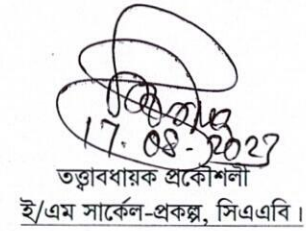 17.08.2023
তত্ত্বাবধায়ক প্রকৌশলী
ই/এম সার্কেল-প্রকল্প, সিএএবি।